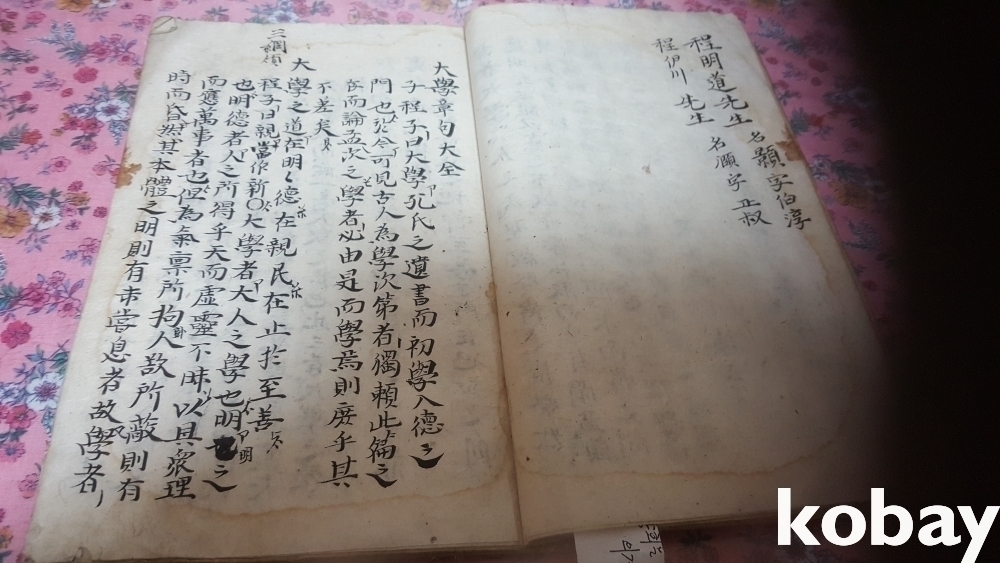 程明道先生 名顥 字伯淳
程伊川 先生 名 字正叔
大學章句大全
子程子曰大學孔氏之遺書而初學入德之
門也於今可見古人為學次第者獨賴此篇之
存而論孟次之學者必由是而學焉則庶乎其
不差矣
三綱領
大學之道在明〻德在親民在止於至善
程子曰親當作新○大學者大人之學也明明之
也明德者人之所得乎天而虛靈不昧以具衆理
而應萬事者也但為氣稟所拘人故所蔽則有
時而昏然其本體之明則有未嘗息者故學者
kobay